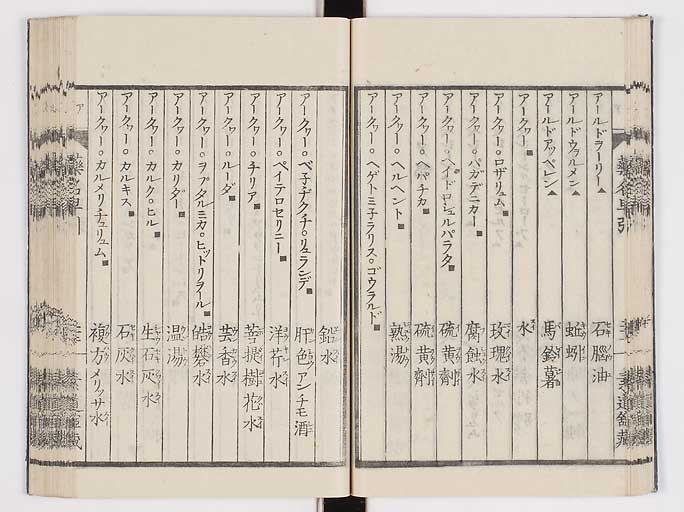 アールドラーリー▲ 石腦油
アールドウヲルメン▲ 蚯蚓
アールドアッペレン▲ 馬鈴薯
アークヮー■ 水
アークヮー○ロザリュム■ 玫瑰水
アークヮー○パガデニカー■ 腐蝕水
アークヮー○ヘイドロシュルパラタ■ 硫黄劑
アークヮー○ヘパチカ■ 硫黄劑
アークヮー○ヘルヘント■ 熱湯
アークヮー○ヘゲトミ子ラリス○ゴウラルド■
鉛水
アークヮー○ベ子ヂクチ○リュランデ■ 胖色アンチモ酒
アークヮー○ペイテロセリニー■ 洋芹水
アークヮー○チリア■ 菩提樹花水
アークヮー○ルーダ■ 芸香水
アークヮー○ヲフタルミカ○ヒットリヲール■ 皓礬水
アークヮー○カリダー■ 温湯
アークヮー○カルク○ヒル■ 生石灰水
アークヮー○カルキス■ 石灰水
アークヮー○カルメリチュリュム■ 複方メリッサ水